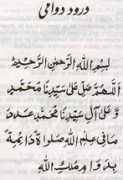 درود دوامی
بِسْمِ اللهِ الرَّحْمٰنِ الرَّحِيْمِ
اَللّٰهُمَّ صَلِّ عَلٰى سَيِّدِنَا مُحَمَّدٍ
وَّعَلٰى اٰلِ سَيِّدِنَا مُحَمَّدٍ عَدَدَ
مَا فِيْ عِلْمِ اللهِ صَلٰوةً دَائِمَةً
بِدَوَامِ مُلْكِ اللهِ